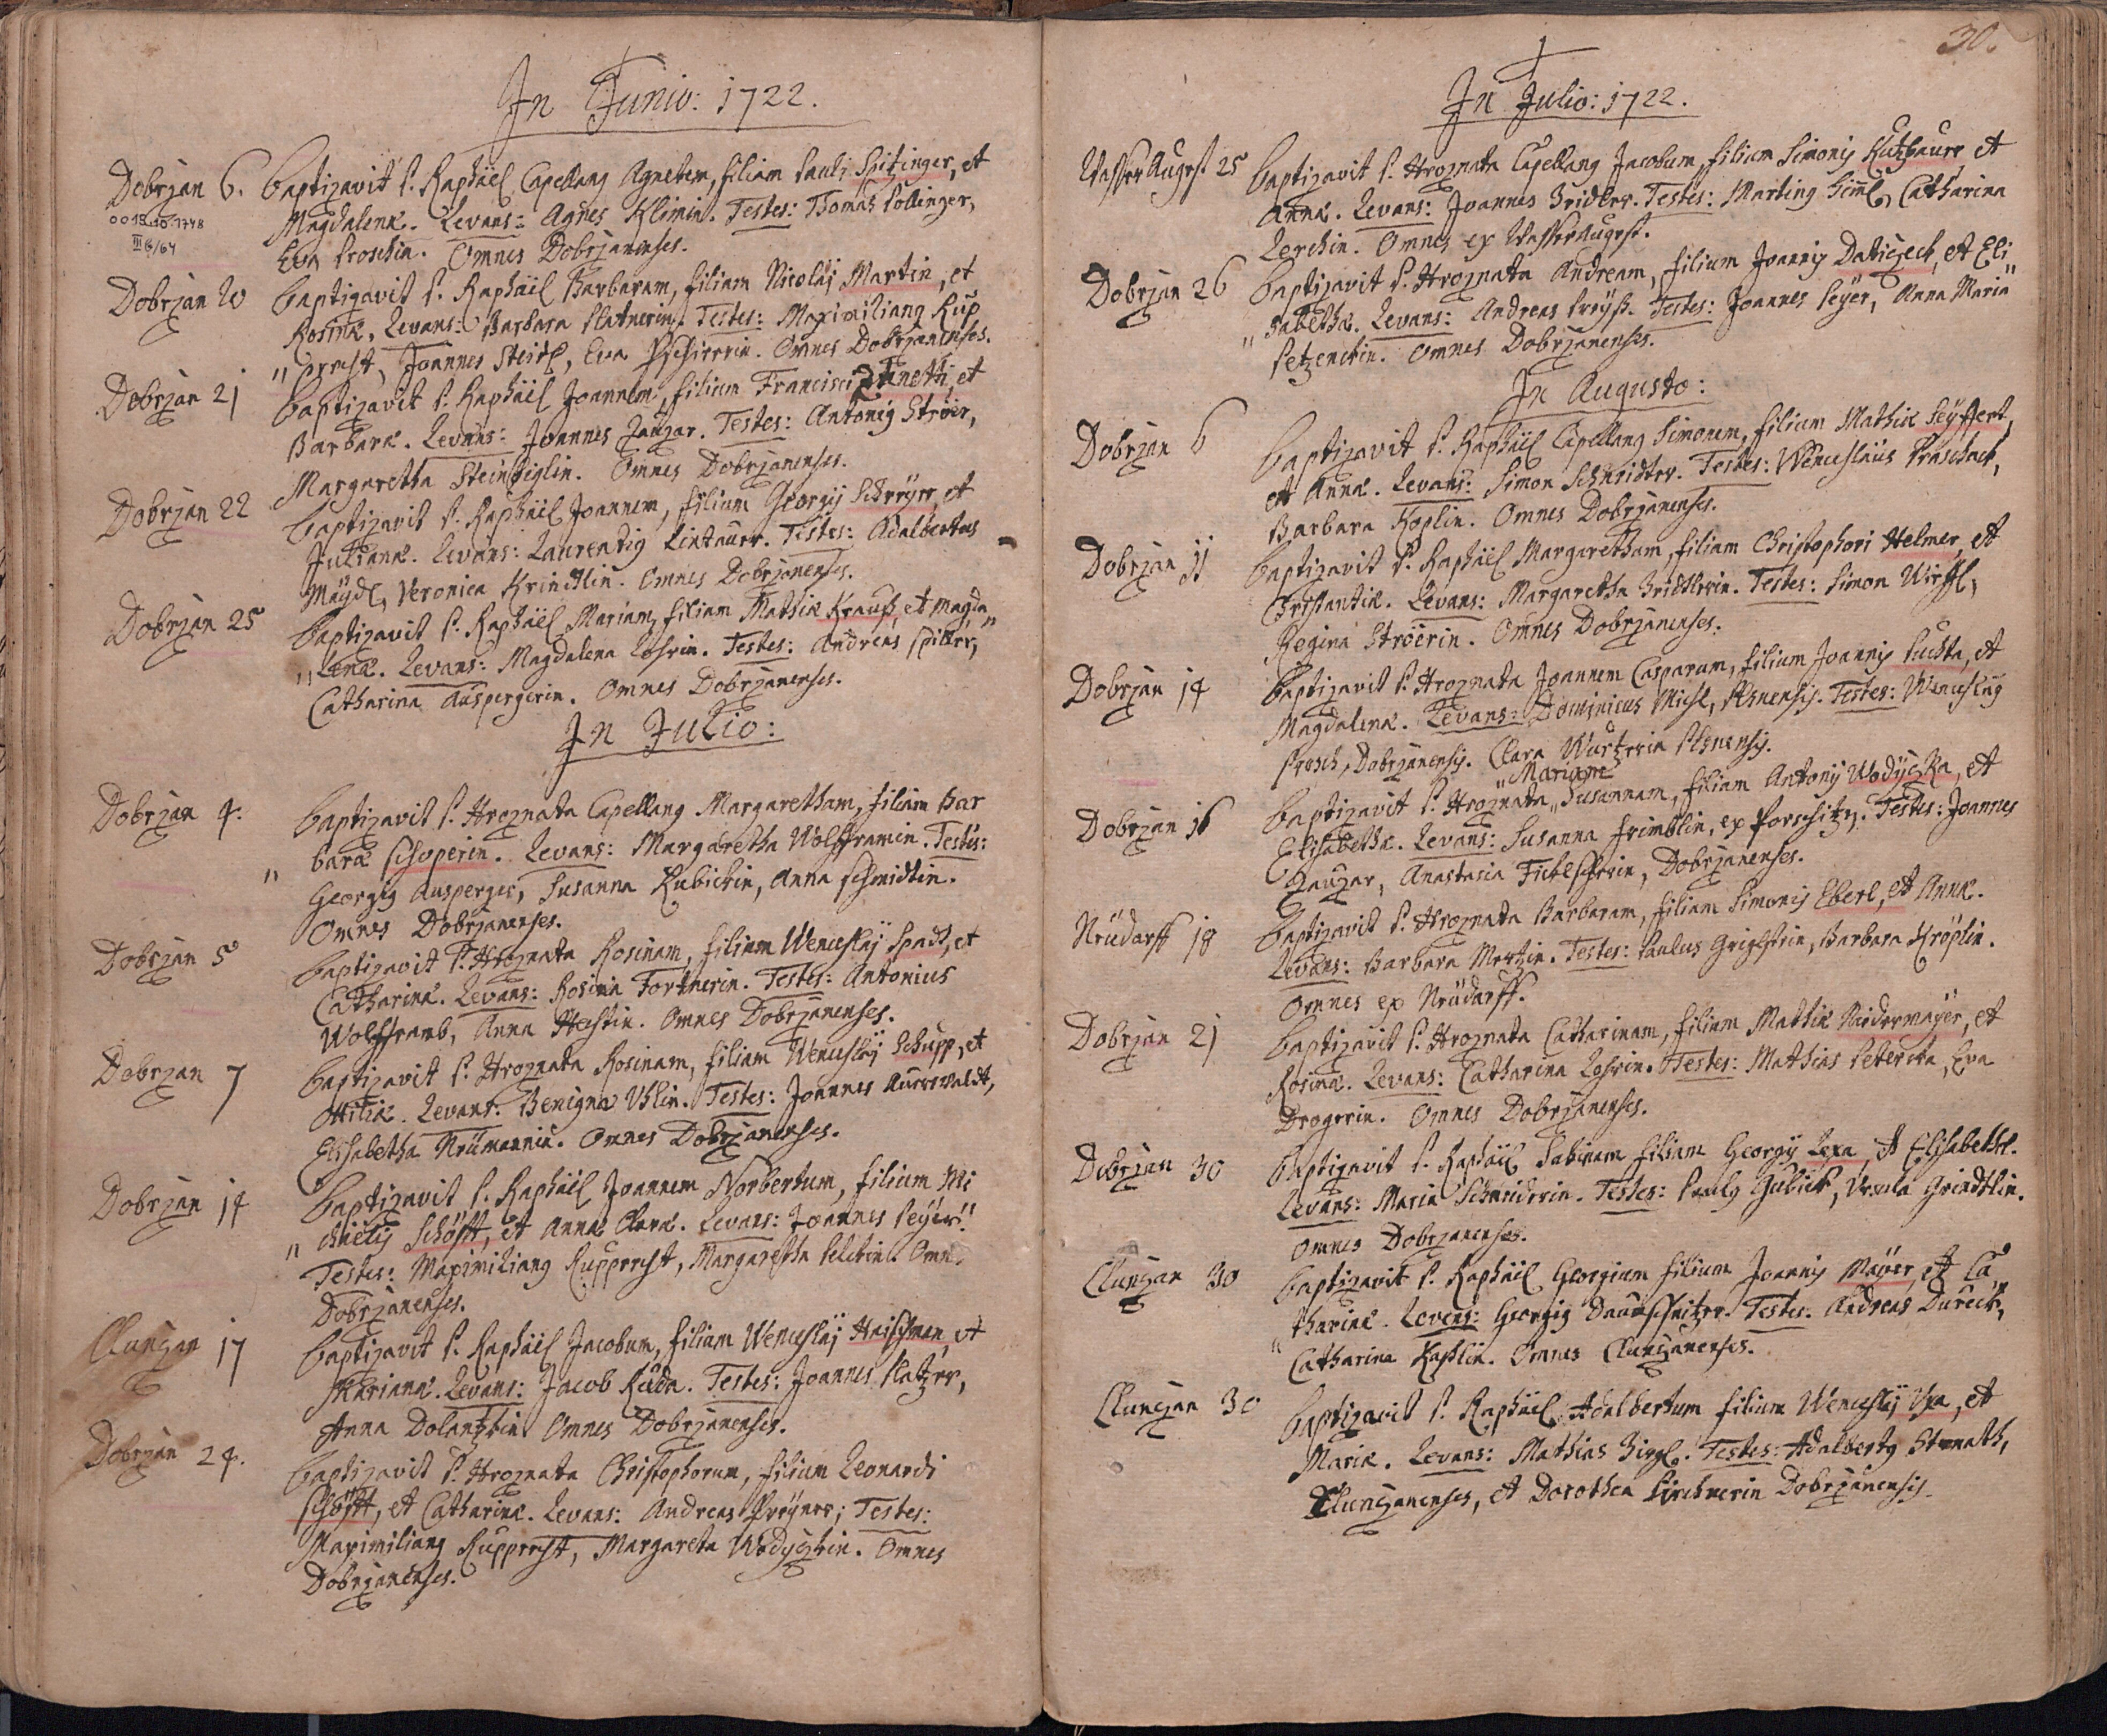 In Junio: 1722.
Dobrzan 6. baptizavit P. Raphäel Capellang Agnetem, filiam Pauli Spitzinger, et
Magdalenæ. Levans: Agnes Klimin. Testes: Thomas Pollinger,
Eva Proschin. Omnes Dobrzanenses.
Dobrzan 20 baptizavit P. Raphäel Barbaram, filiam Nicolaj Martin, et
Rosinæ. Levans: Barbara Platnerin. Testes: Maximiliang Rup
"precht, Joannes Steidl, Eva. Omnes Dobrzanenses.
Dobrzan 21 baptizavit P. Raphäel Joannem, filium Francisci Zanetti, et
Barbaræ. Levans: Joannes Zauzar. Testes: Antonig Ströer,
Margaretha Steinbiglin. Omnes Dobrzanenses.
Dobrzan 22 baptizavit P. Raphäel Joannem, filium Georgij Schreyer, et
Julianæ. Levans: Laurentig Lintauer. Testes: Adalbertus
Maydl, Veronica Krindlin. Omnes Dobrzanenses.
Dobrzan 25 baptizavit P. Raphäel Mariam, filiam Mathiæ Krauß, et Magda"
"lenæ. Levans: Magdalena Losrin. Testes: Andreas Spiller,
Catharina Auspergerin. Omnes Dobrzanenses.
In Julio:
Dobrzan 4. baptizavit P. Hroznata Capellang Margaretham, filiam Bar
" baræ Schoperin. Levans: Margaretha Wolfframin. Testes:
Georgig Ausperger, Susanna Kubickin, Anna Schmidtin.
Omnes Dobrzanenses.
Dobrzan 5 baptizavit P. Hroznata Rosinam, filiam Wenceslaj Spadt, et
Catharinæ. Levans: Rosina Fortnerin. Testes: Antonius
Wolfframb, Anna. Omnes Dobrzanenses.
Dobrzan 7 baptizavit P. Hroznata Rosinam, filiam Wenceslaj Schupp, et
Ottiliæ. Levans: Benigna Uhlin. Testes: Joannes Auerswaldt,
Elisabetha Neümannin. Omnes Dobrzanenses.
Dobrzan 14 baptizavit P. Raphäel Joannem Norbertum, filium Mi
" chaelis Schöpft, et Annæ Claræ. Levans: Joannes Peyer."
Testes: Maximiliang Rupprecht, Margaretha. Omn.
Dobrzanenses.
Clunzan 17 baptizavit P. Raphäel Jacobum, filium Wenceslaj Heischman, et
Marianæ. Levans: Jacob Ruda. Testes: Joannes Platzer,
Anna. Omnes Dobrzanenses.
Dobrzan 24. baptizavit P. Hroznata Christophorum, filium Leonardi
Schöpft, et Catharinæ. Levans: Andreas Preyner; Testes:
Maximiliang Rupprecht, Margareta Wodyczkin. Omnes
Dobrzanenses.
30.
In Julio: 1722.
WasserAugest 25 baptizavit P. Hroznata Capellang Jacobum, filium Simonis Kutzbauer, et
Annæ. Levans: Joannes Bridler. Testes: Marting Himl, Catharina
Lerchin. Omnes ex WasserAugest.
Dobrzan 26 baptizavit P. Hroznata Andream, filium Joannis Daticzeck, et Eli"
" sabethæ. Levans: Andreas Preyß. Testes: Joannes Peyer, Anna Maria
Petzenckin. Omnes Dobrzanenses.
In Augusto:
Dobrzan 6 baptizavit P. Raphäel Capellang Simonem, filium Mathiæ Seyffert,
et Annæ. Levans: Simon Schneider. Testes: Wenceslaus Praschack,
Barbara Koplin. Omnes Dobrzanenses.
Dobrzan 11 baptizavit P. Raphäel Margaretham, filiam Christophori Helmer, et
Constantiæ. Levans: Margaretha Bridlerin. Testes: Simon Wirffl,
Regina Ströerin. Omnes Dobrzanenses.
Dobrzan 14 baptizavit P. Hroznata Joannem Casparum, filium Joannis Puchta, et
Magdalenæ. Levans: Dominicus Michl, Plsnensis. Testes: Wenceslaus
Prosch, Dobrzanensis. Clara Wurtzerin Plsnensis.
"Mariam
Dobrzan 16 baptizavit P. Hroznata" Susannam, filiam Antonij Wodyczka, et
Elisabethæ. Levans: Susanna Frimblin, ex Porschitz. Testes: Joannes
Zauzar, Anastasia, Dobrzanenses.
Neüdorff 18 baptizavit P. Hroznata Barbaram, filiam Simonis Eberl, et Annæ.
Levans: Barbara Mertzin. Testes: Paulus, Barbara Kröplin.
Omnes ex Neüdorff.
Dobrzan 21 baptizavit P. Hroznata Catharinam, filiam Mathiæ Nidermayer, et
Rosinæ. Levans: Catharina Losrin. Testes: Mathias Peterka, Eva
Drogerin. Omnes Dobrzanenses.
Dobrzan 30 baptizavit P. Raphäel Sabinam filiam Georgij Lexa, et Elisabethæ.
Levans: Maria Schneiderin. Testes: Paulg Gubick, Ursula Grindtlin.
Omnes Dobrzanenses.
Clunzan 30 baptizavit P. Raphäel Georgium filium Joannis Mayer, et Ca"
" tharinæ. Levans: Georgig. Testes. Andreas Dureck,
Catharina Kaplin. Omnes Clunzanenses.
Clunzan 30 baptizavit P. Raphäel Adalbertum filium Wenceslaj Uxa, et
Mariæ. Levans: Mathias Hirzl. Testes: Adalbertg Stonath,
Clunzanenses, et Dorothea Kirchnerin Dobrzanensis.